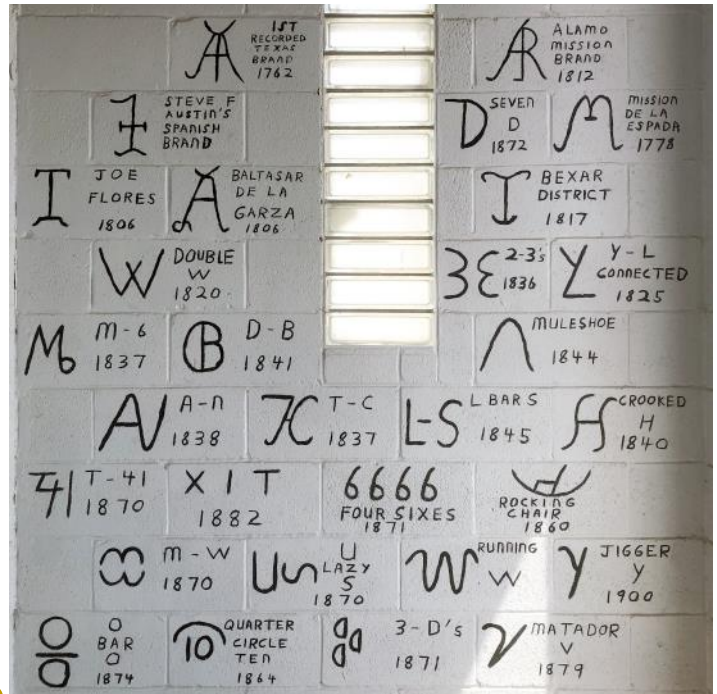 1ST
RECORDED
TEXAS
BRAND
1762
ALAMO
MISSION
BRAND
1812
STEVE F
AUSTIN'S
SPANISH
BRAND
D SEVEN
D
1872
MISSION
DE LA
ESPADA
1778
JOE
FLORES
1806
BALTASAR
DE LA
GARZA
1806
BEXAR
DISTRICT
1817
W DOUBLE
W
1820
2-3's
1836
Y-L
CONNECTED
1825
M-6
1837
D-B
1841
MULESHOE
1844
A-N
1838
T-C
1837
L-S L BAR S
1845
CROOKED
H
1840
T-41
1870
X I T
1882
6666
FOUR SIXES
1871
ROCKING
CHAIR
1860
M-W
1870
U
LAZY
S
1870
RUNNING
W
JIGGER
Y
1900
O
BAR
O
1874
10 QUARTER
CIRCLE
TEN
1864
3-D's
1871
V MATADOR
V
1879